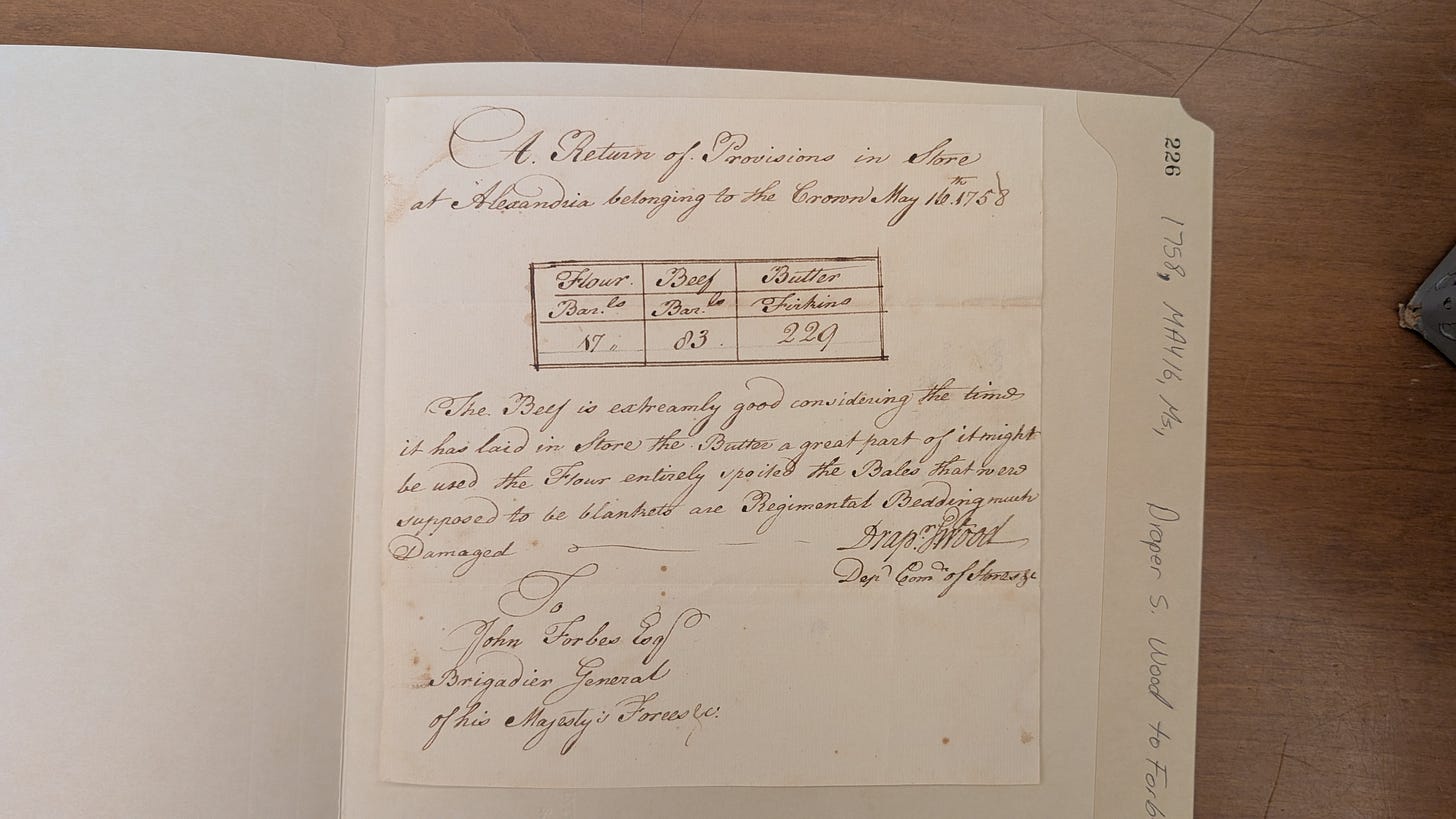 A. Return of Provisions in Store
at Alexandria belonging to the Crown May 16.th 1758
Flour. Beef Butter
Bar.ls Bar.ls Firkins
17 83. 229
The Beef is extreamly good considering the time
it has laid in Store the Butter a great part of it might
be used the Flour entirely spoiled the Bales that were
supposed to be blankets are Regimental Bedding much
Damaged
Drap.r S Wood
Dep.y Com.y of Stores &c
To
John Forbes Esq.r
Brigadier General
of his Majesty's Forces &c.
226 1758, MAY 16, Ms, Draper S. Wood to Forb